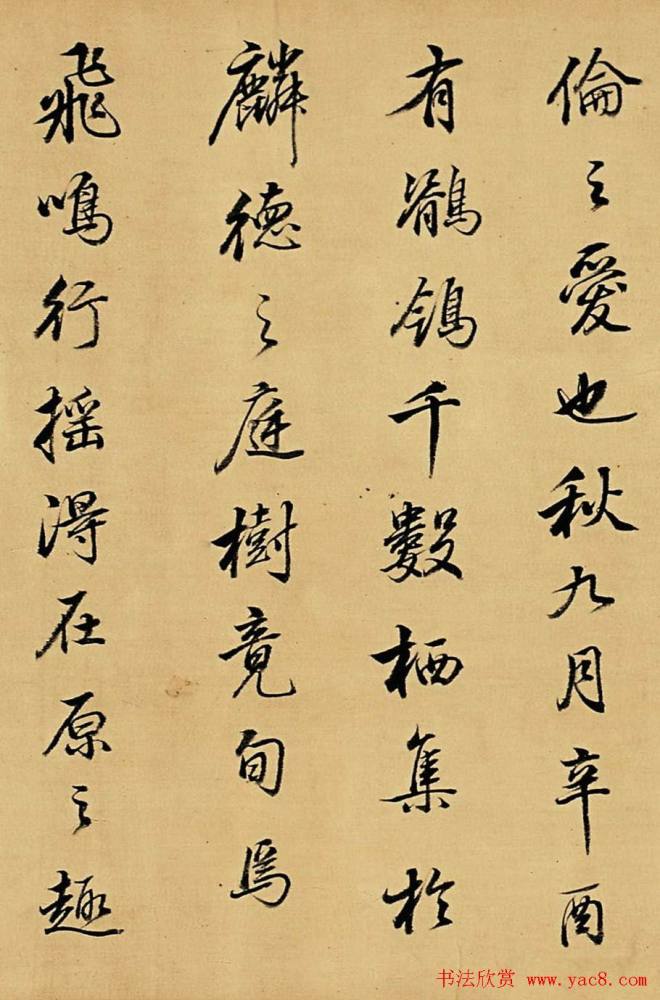 倫之愛也秋九月辛酉
有鶺鴒千數栖集於
麟德之庭樹竟旬焉
飛鳴行摇得在原之趣
书法欣赏 www.yac8.com